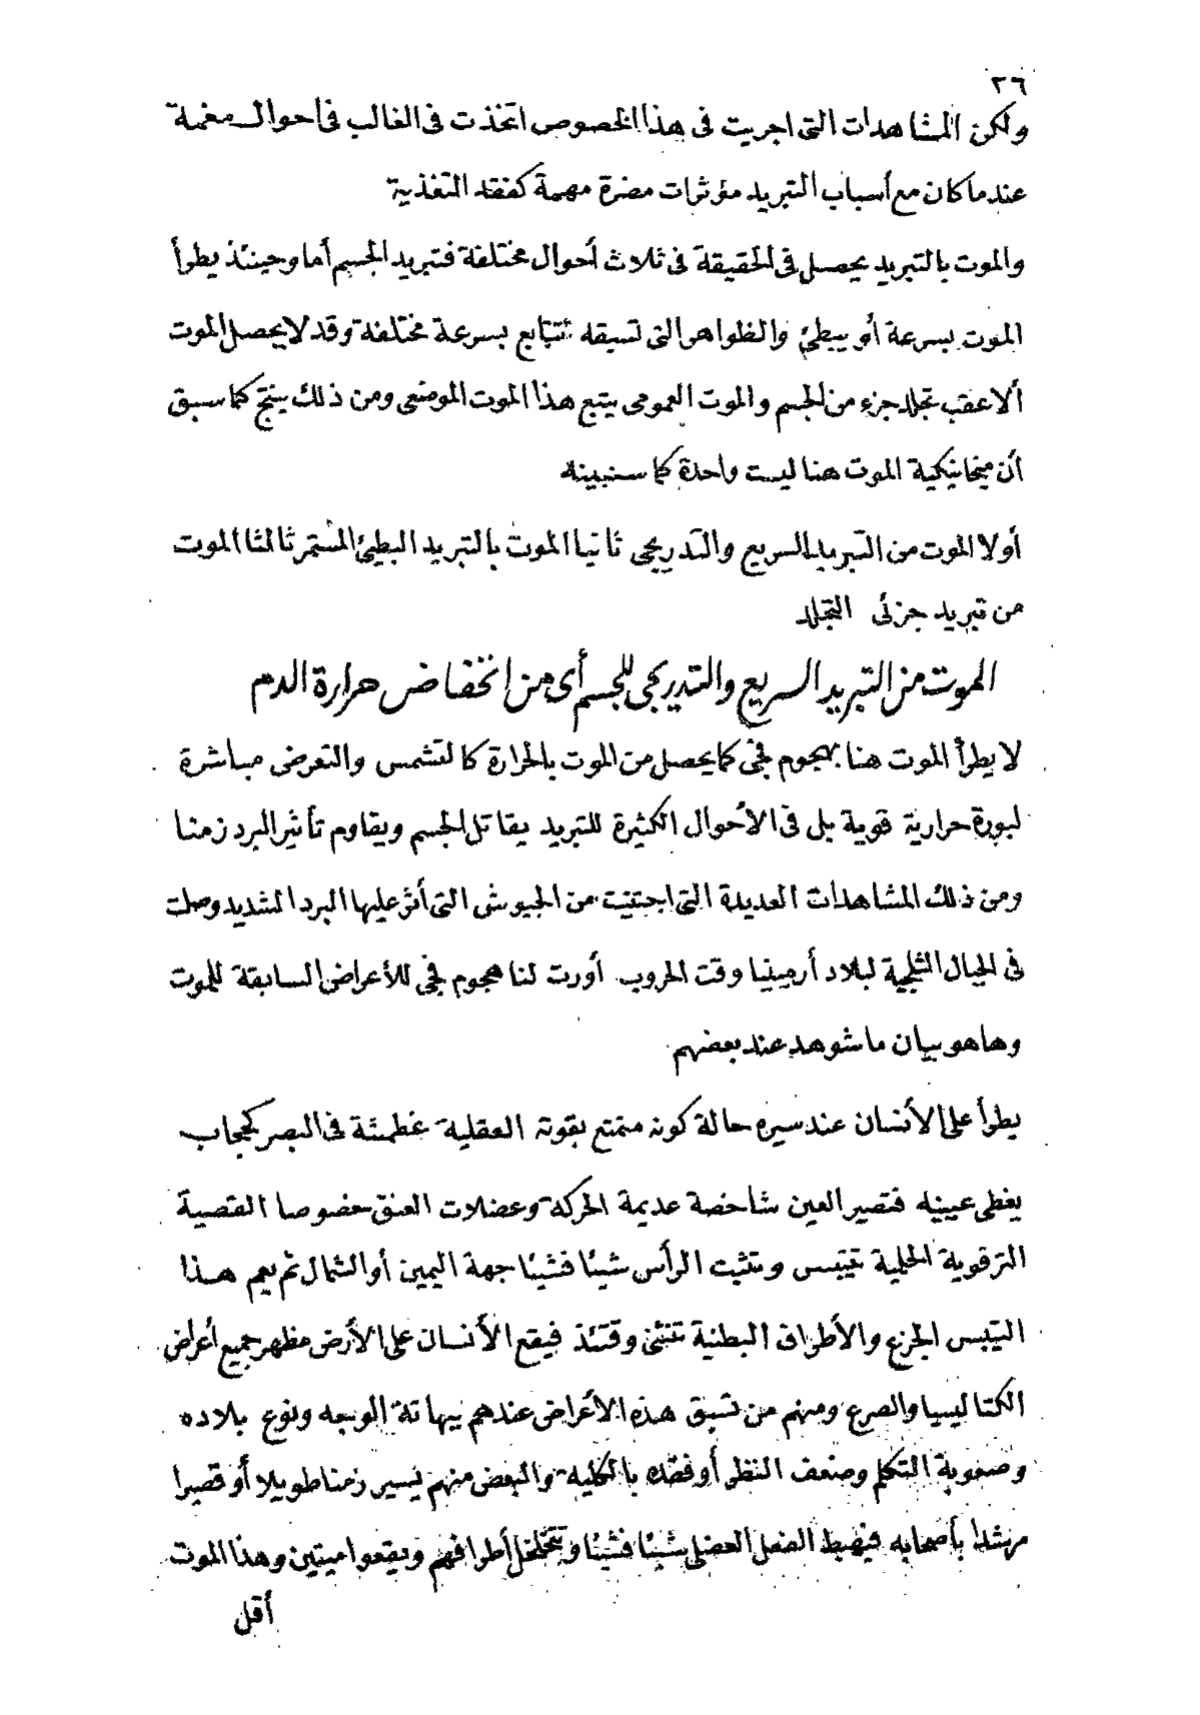 ٢٦
ولكن المشاهدات التى اجريت فى هذا الخصوص اتخذت فى الغالب فى احوال مغمة
عندما كان مع أسباب التبريد مؤثرات مضرة مهمة كفقد التغذية
والموت بالتبريد يحصل فى الحقيقة فى ثلاث أحوال مختلفة فتبريد الجسم أما وحينئذ يطرأ
الموت بسرعة أو ببطئ والظواهر التى تسبقه تتتابع بسرعة مختلفة وقد لا يحصل الموت
ألا عقب تجلد جزء من الجسم والموت العمومى يتبع هذا الموت الموضعى ومن ذلك ينتج كما سبق
أن ميخانيكية الموت هنا ليست واحدة كما سنبينه
أولا الموت من التبريد السريع والتدريجى ثانيا الموت بالتبريد البطيئ المستمر ثالثا الموت
من تبريد جزئى التجلد
الموت من التبريد السريع والتدريجى للجسم أى من انخفاض حرارة الدم
لا يطرأ الموت هنا بهجوم فجى كما يحصل من الموت بالحرارة كالتشمس والتعرض مباشرة
لبورة حرارية قوية بلى فى الأحوال الكثيرة للتبريد يقاتل الجسم ويقاوم تأثير البرد زمنا
ومن ذلك المشاهدات العديدة التى اجتنيت من الجيوش التى أثر عليها البرد الشديد وصلت
فى الجبال الثلجية لبلاد أرمينيا وقت الحروب أورت لنا هجوم فجى للأعراض السابقة للموت
وها هو بيان ما شوهد عند بعضهم
يطرأ على الأنسان عند سيره حالة كونه متمتع بقوته العقلية غطمشة فى البصر كحجاب
يغطى عينيه فتصير العين شاخصة عديمة الحركة وعضلات العنق خصوصا القصية
الترقوية الحلمية تتيبس وتثبت الرأس شيئا فشيئا جهة اليمين أو الشمال ثم يعم هذا
التيبس الجزع والأطراف البطنية تنثنى وقتئذ فيقع الأنسان على الأرض مظهر جميع أعراض
الكتاليبسيا والصرع ومنهم من تسبق هذه الأعراض عندهم بيهاتة الوجه ونوع بلاده
وصعوبة التكلم وضعف النظر أو فقده بالكلية والبعض منهم يسير زمنا طويلا أو قصيرا
مرشدا بأصحابه فيهبط الفعل العضلى شيئا فشيئا وتتخلخل أطرافهم ويقعوا ميتين وهذا الموت
أقل